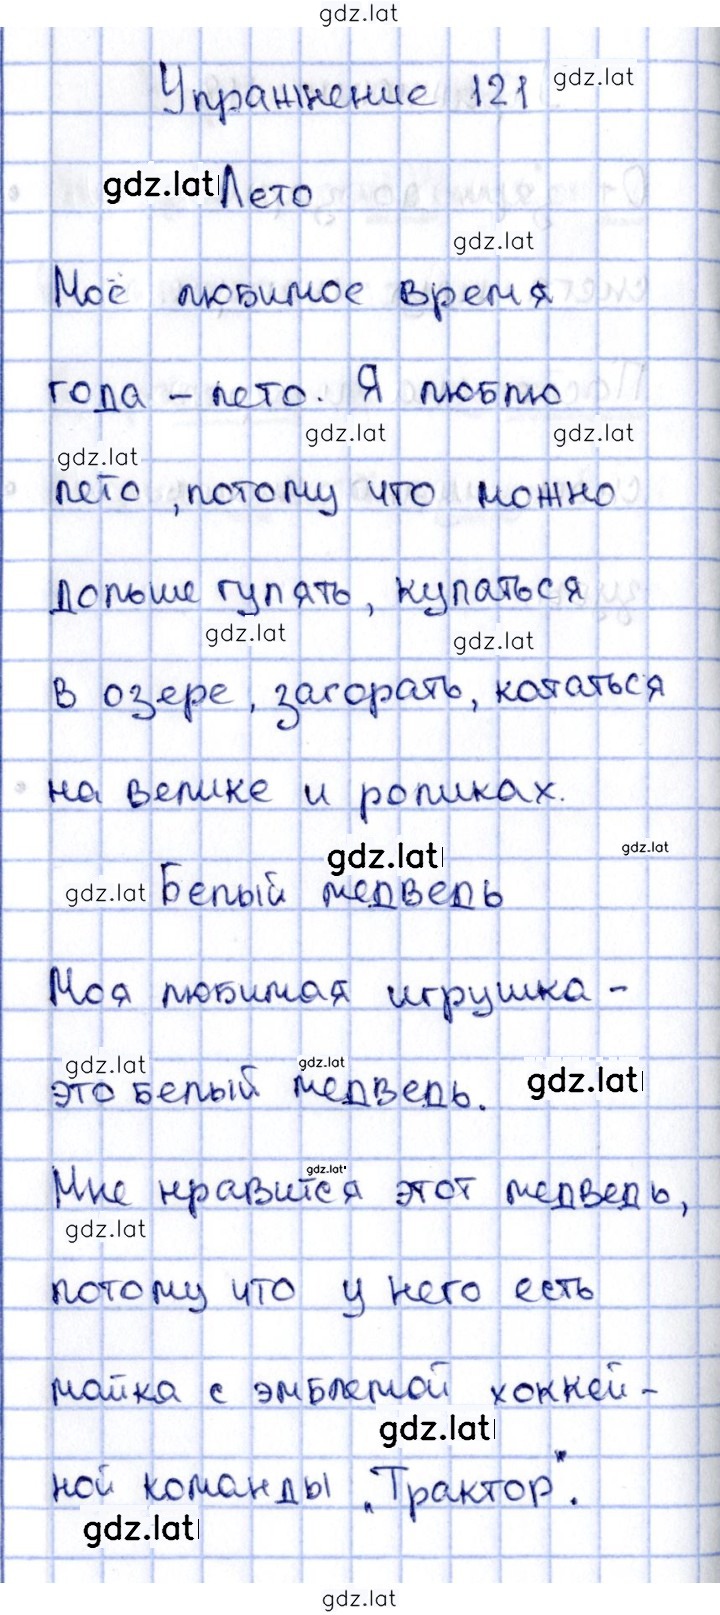 gdz.lat
Упражнение 121 gdz.lat
gdz.lat Лето
gdz.lat
Моё любимое время
года – лето. Я люблю
gdz.lat gdz.lat gdz.lat
лето, потому что можно
дольше гулять, купаться
gdz.lat gdz.lat
в озере, загорать, кататься
на велике и роликах.
gdz.lat gdz.lat
gdz.lat Белый медведь
Моя любимая игрушка –
gdz.lat gdz.lat gdz.lat
это белый медведь.
gdz.lat
Мне нравится этот медведь,
gdz.lat
потому что у него есть
майка с эмблемой хоккей-
gdz.lat
ной команды „Трактор".
gdz.lat
gdz.lat